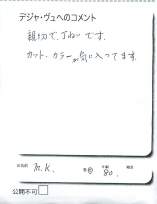 デジャ・ヴュへのコメント
親切で、丁ねいです。
カット・カラーが気に入ってます
お名前 M.K. 男女 年齢 80. 職業
公開不可